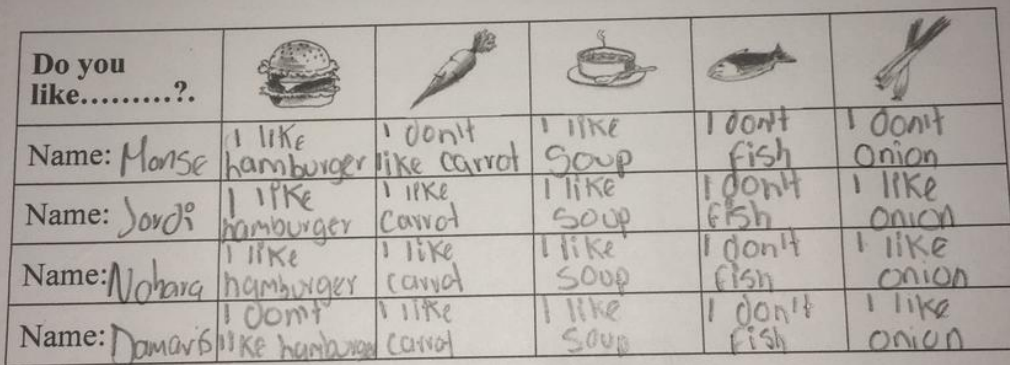 Do you
like.........?.
Name: Monse
I like
hamburger
I don't
like carrot
I like
soup
I don't
fish
I don't
onion
Name: Jordi
I like
hamburger
I like
carrot
I like
soup
I don't
fish
I like
onion
Name: Nohara
I like
hamburger
I like
carrot
I like
soup
I don't
fish
I like
onion
Name: Damaris
I domt
like hamburger
I like
carrot
I like
soup
I don't
fish
I like
onion